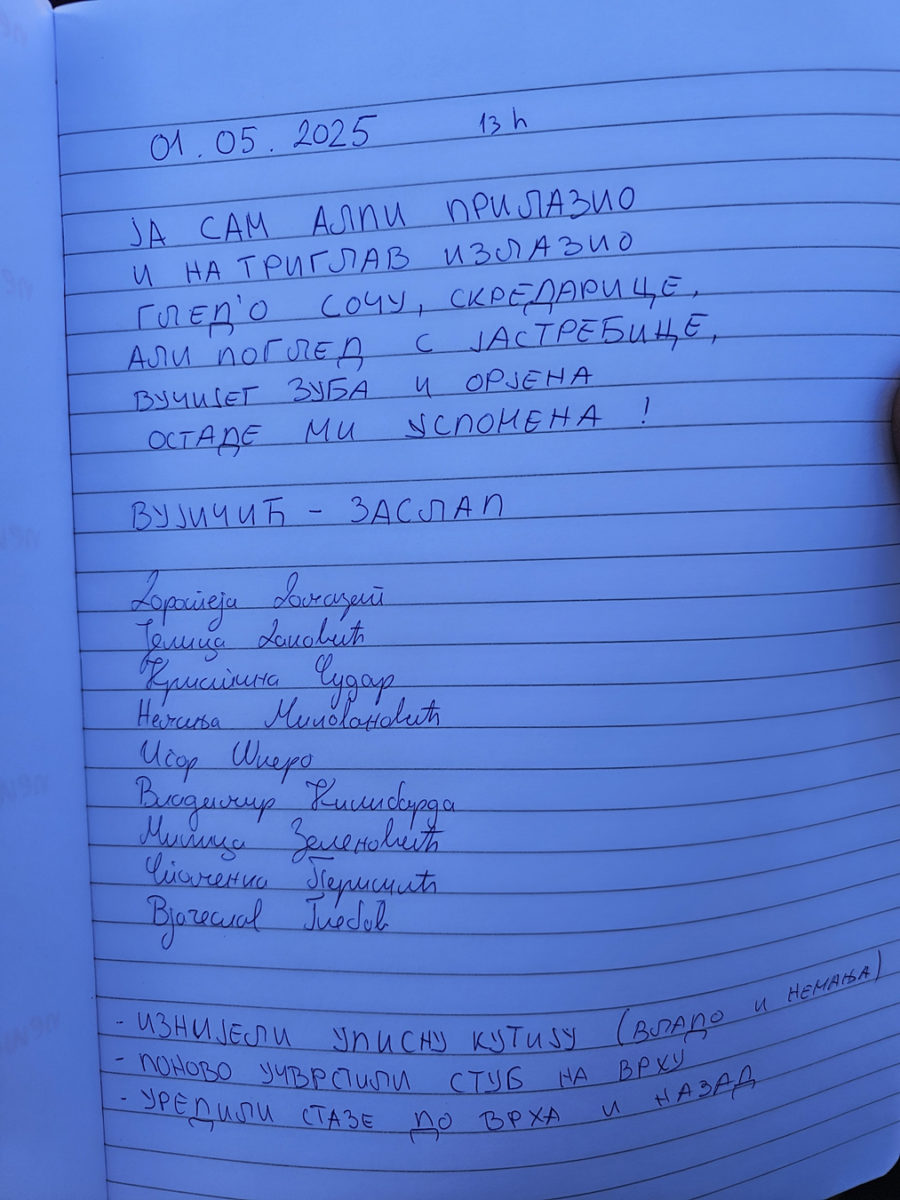 01.05.2025 13 h
ЈА САМ АЛПИ ПРИЛАЗИО
И НА ТРИГЛАВ ИЗЛАЗИО
ГЛЕД'О СОЧУ, СКРЕДАРИЦЕ,
АЛИ ПОГЛЕД С ЈАСТРЕБИЦЕ,
ВУЧИЈЕГ ЗУБА И ОРЈЕНА
ОСТАДЕ МИ УСПОМЕНА !
ВУЈИЧИЋ - ЗАСЛАП
Доротеја
Јелица
Кристина Чудар
Немања Миловановић
Игор Шкеро
Владимир Килибарда
Милица Зеленовић
Перишић
Вјачеслав Глебов
- ИЗНИЈЕЛИ УПИСНУ КУТИЈУ (ВЛАДО И НЕМАЊА)
- ПОНОВО УЧВРСТИЛИ СТУБ НА ВРХУ
- УРЕДИЛИ СТАЗЕ ДО ВРХА И НАЗАД